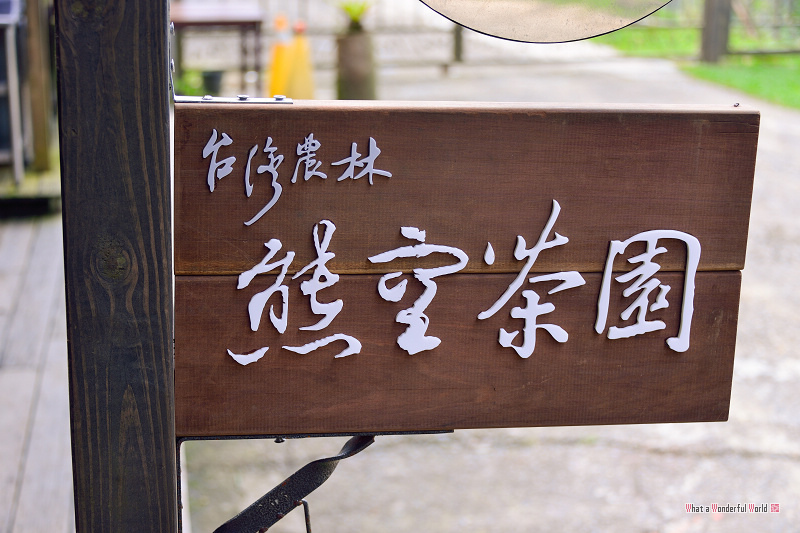 台灣農林
熊空茶園
What a Wonderful World